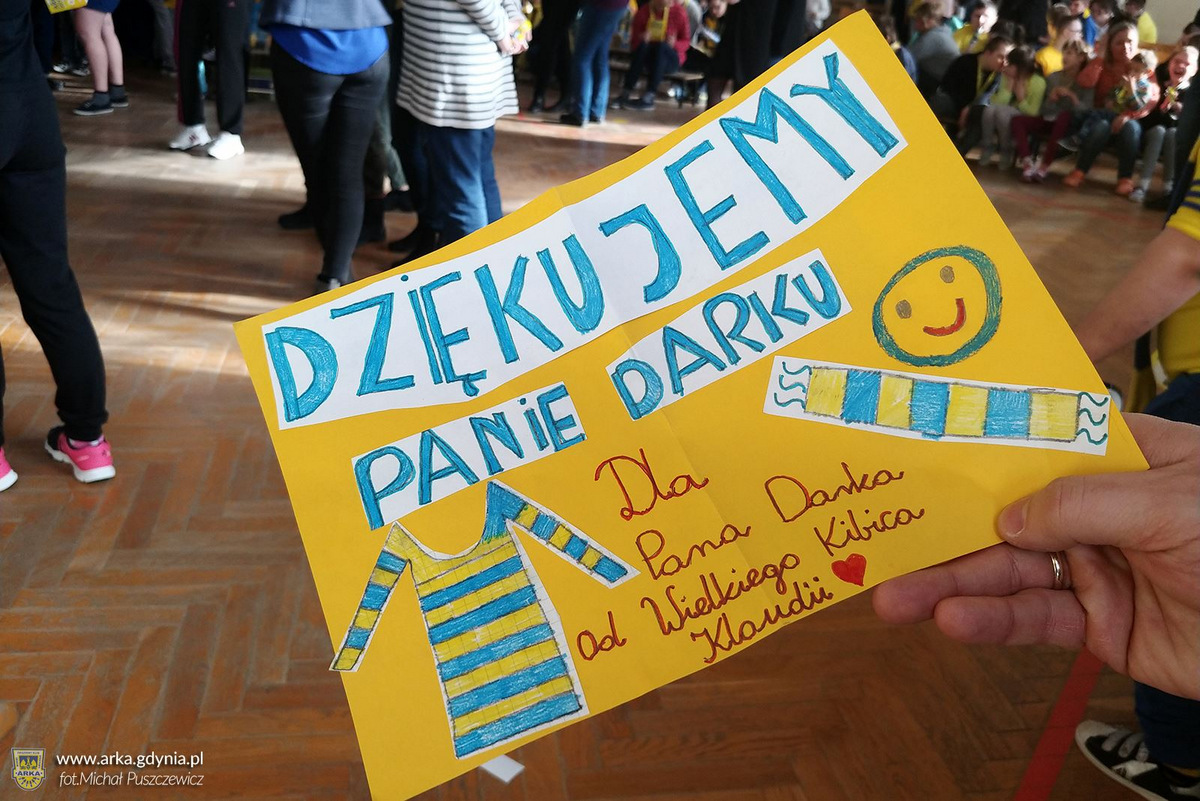 DZIĘKUJEMY
PANIE DARKU
Dla
Pana Darka
od Wielkiego Kibica
Klaudii
www.arka.gdynia.pl
fot.Michał Puszczewicz
ARKA